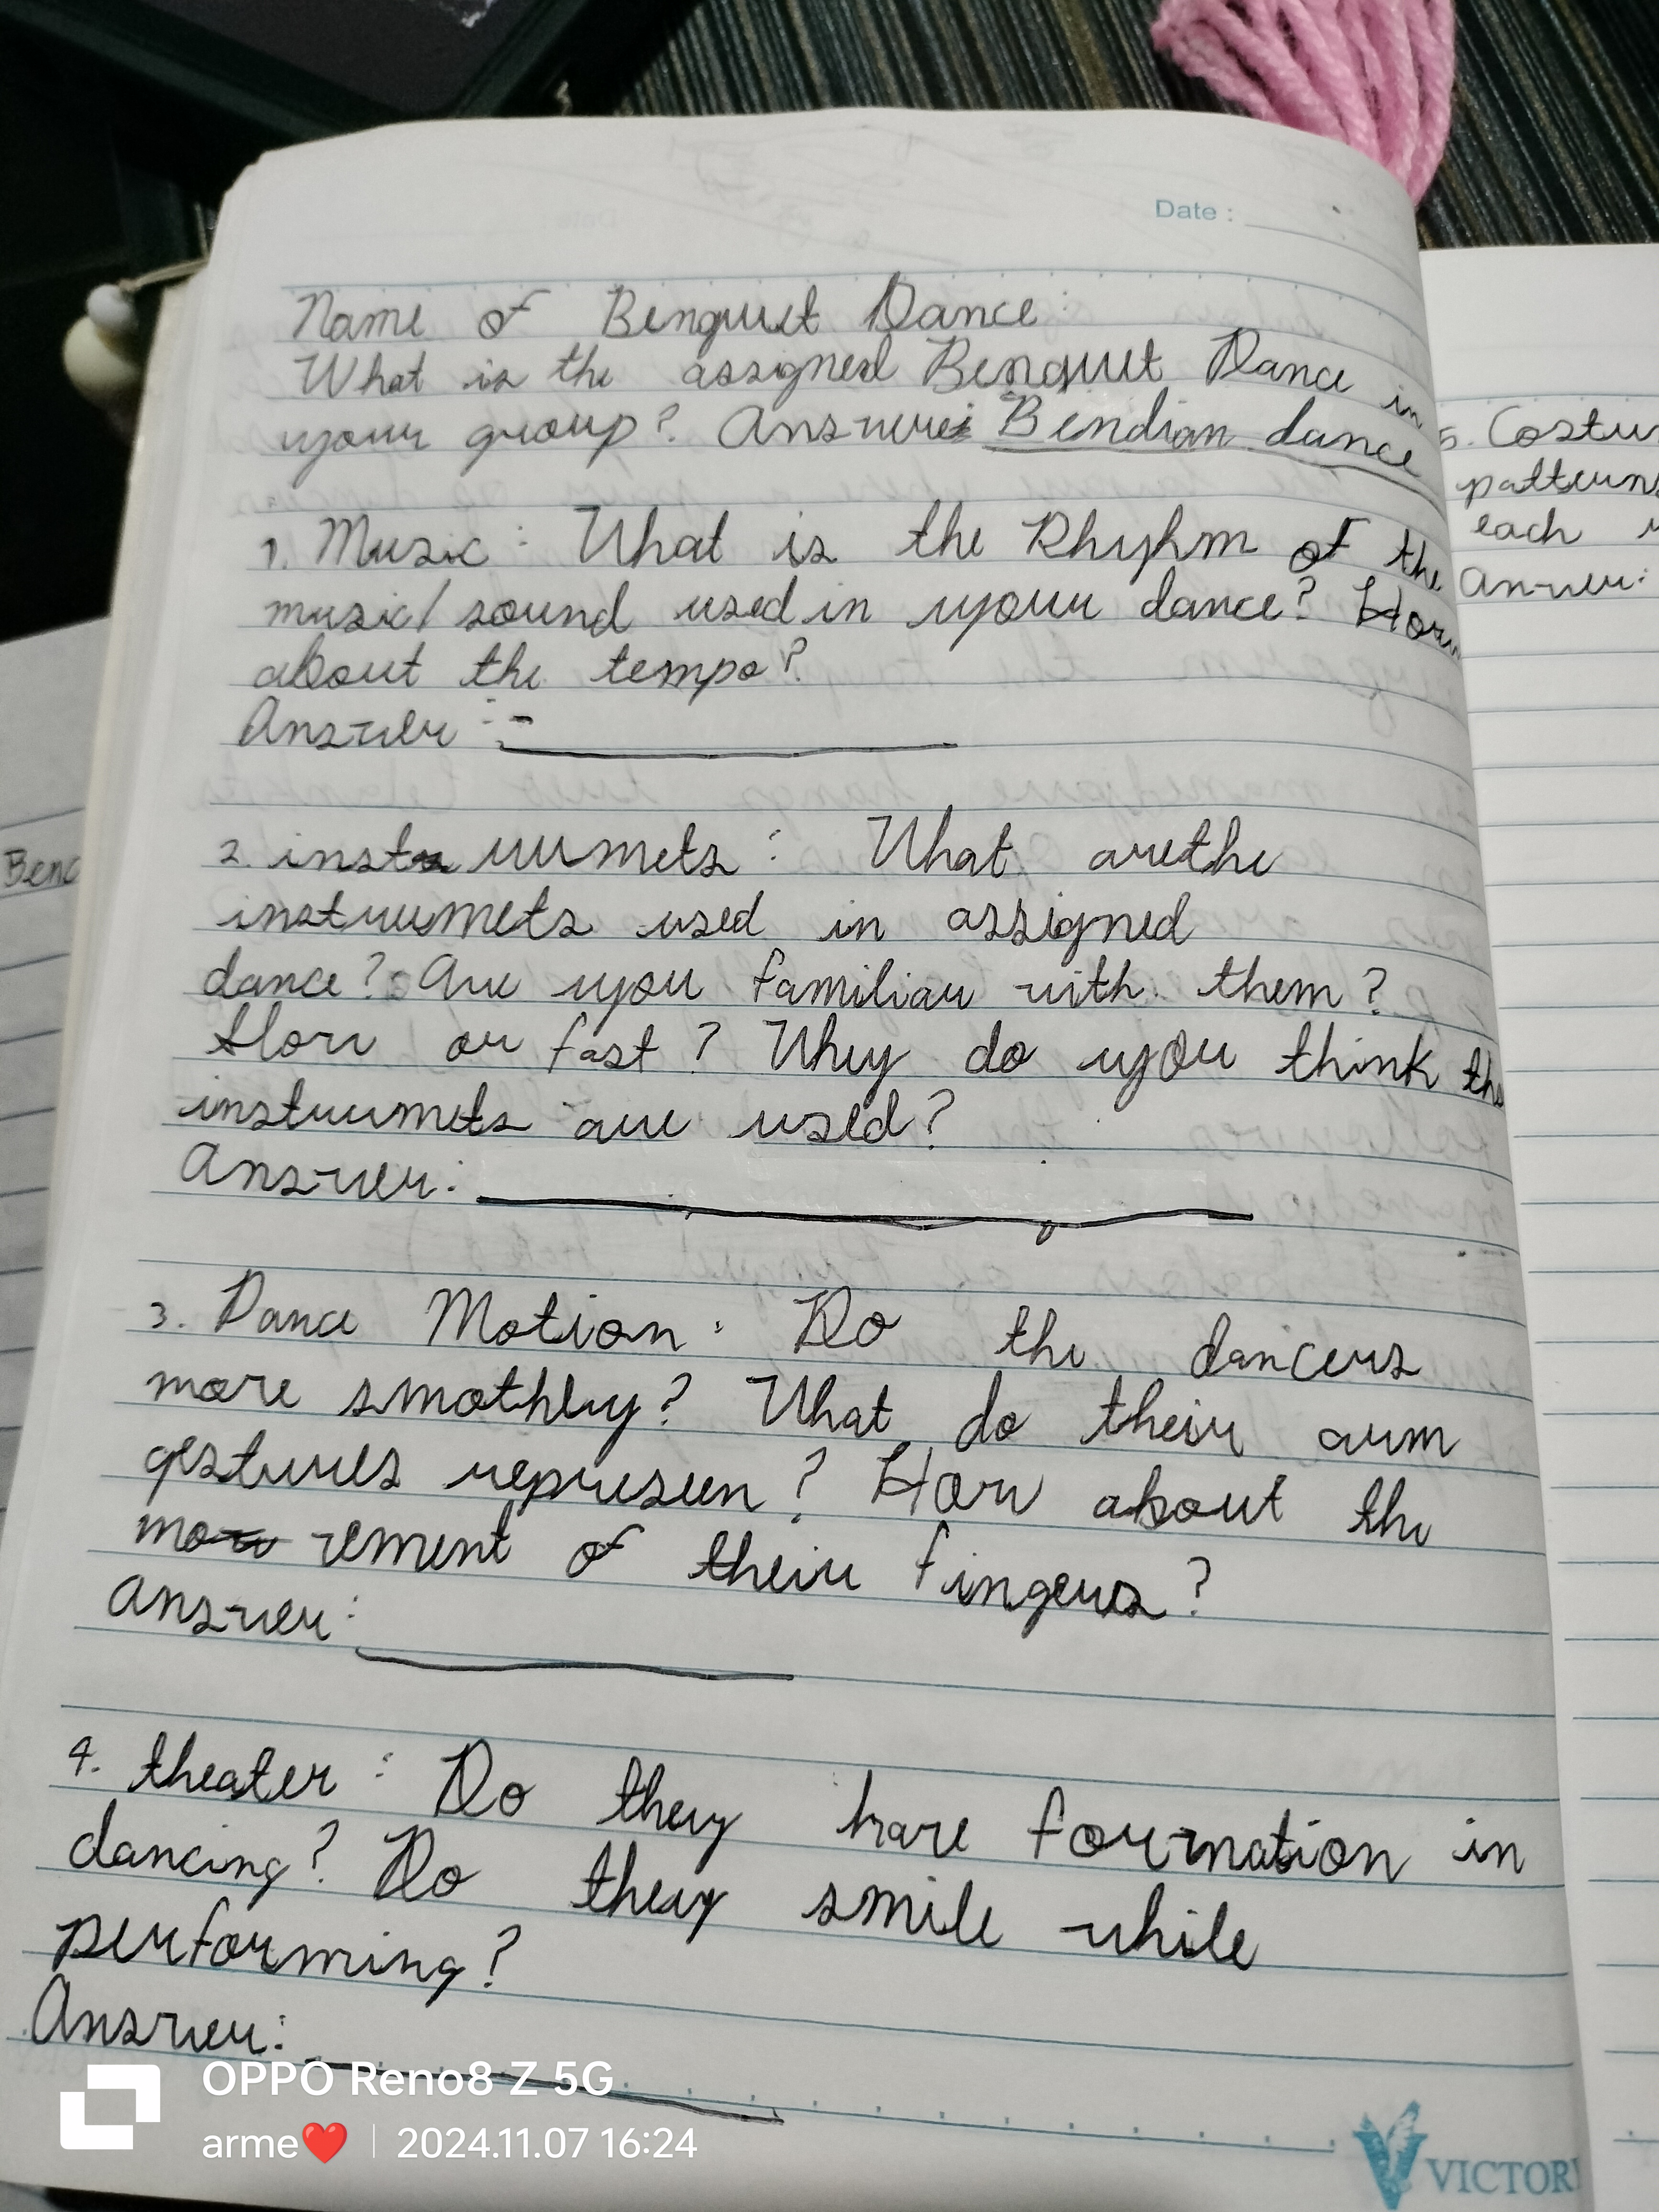 Date :
Name of Benguet Dance:
What is the assigned Benguet Dance in
your group? Answer: Bendian dance
1. Music : What is the Rhyhm of the
music/sound used in your dance? How
about the tempo?
Answer :-
2. inst ruumets : What arethe
instruumets used in assigned
dance? Are you familiar with them?
Slow or fast ? Why do you think the
instrumets are used?
Answer:
3. Dance Motion : Do the dancers
move smothly? What do their arm
gestures represeen? How about the
mo vement of their fingers?
Answer:
4. theater : Do they have formation in
dancing? Do they smile while
performing?
Answer:
5. Costu
patterns
each
Answer:
Benc
OPPO Reno8 Z 5G
arme❤️ | 2024.11.07 16:24
VICTOR